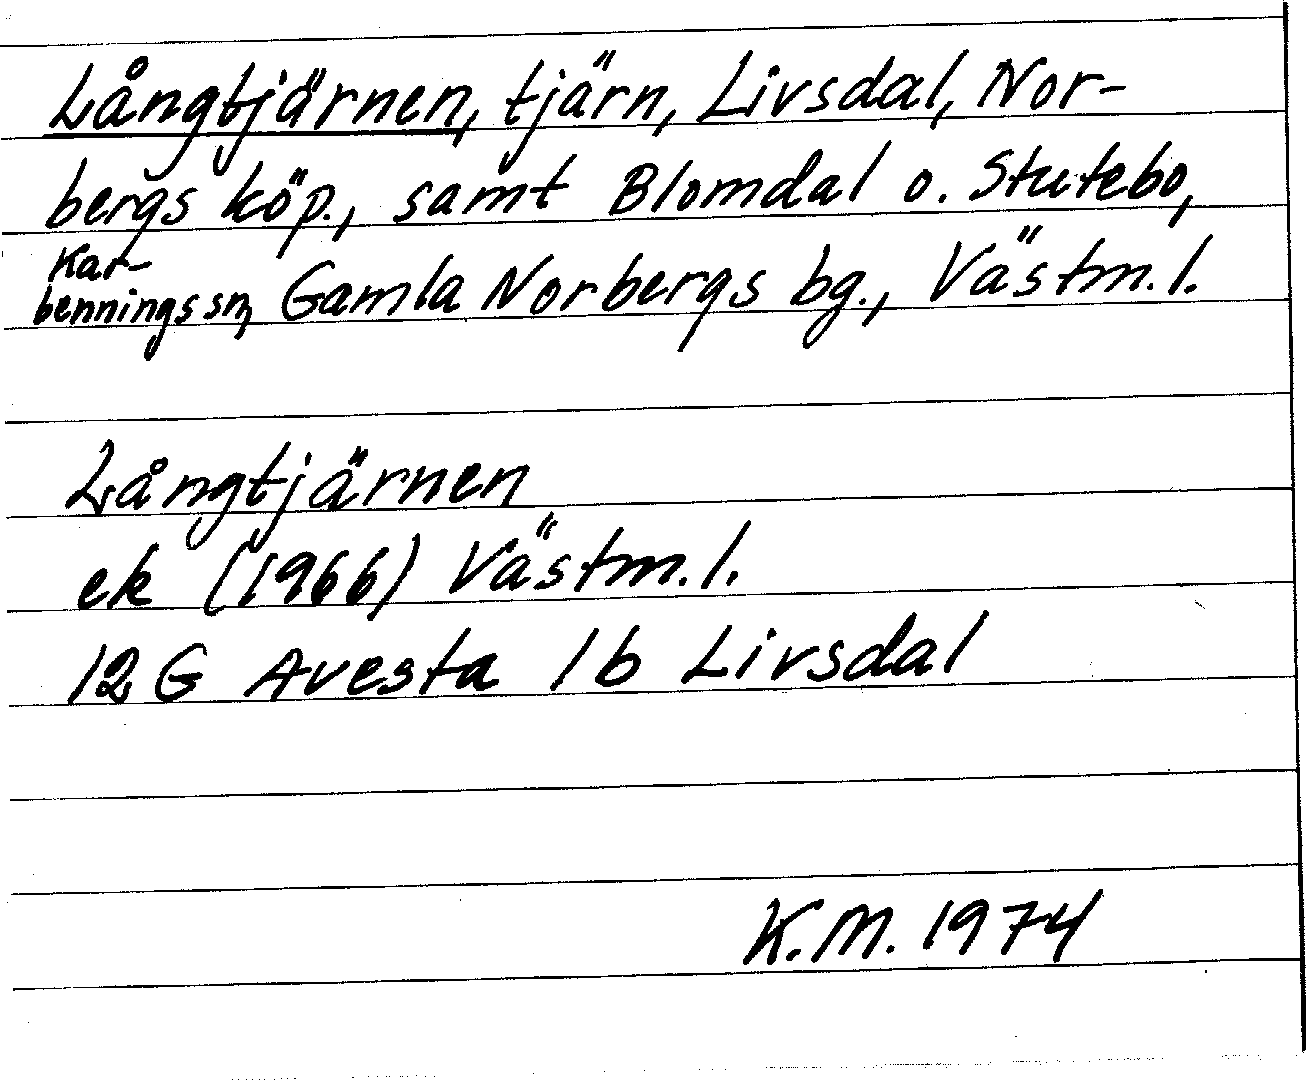 Långtjärnen, tjärn, Livsdal, Nor-
bergs köp., samt Blomdal o. Stutebo,
Kar-
bennings sn, Gamla Norbergs bg., Västm.l.
Långtjärnen
ek (1966) Västm.l.
12 G Avesta 1b Livsdal
K.M. 1974